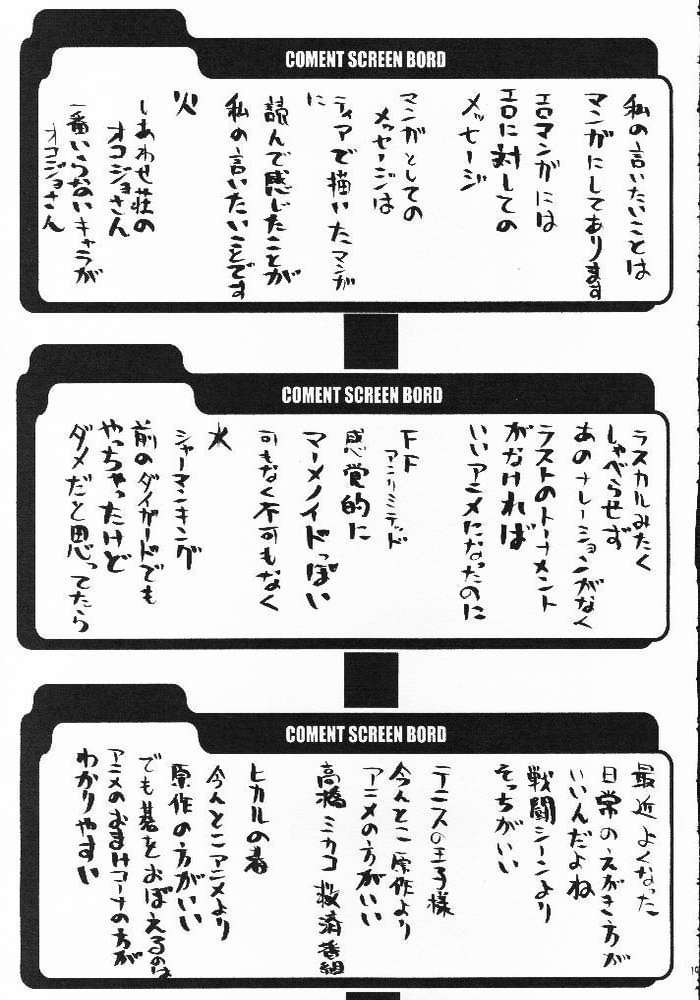 COMENT SCREEN BORD
私の言いたいことは
マンガにしてあります
エロマンガには
エロに対しての
メッセージ
マンガとしての
メッセージは
ティアで描いたマンガ
に
読んで感じたことが
私の言いたいことです
火
しあわせ荘の
オコジョさん
一番いらないキャラが
オコジョさん
COMENT SCREEN BORD
ラスカルみたく
しゃべらせず
あのナレーションがなく
ラストのトーナメント
がなければ
いいアニメになったのに
FF
アンリミテッド
感覚的に
マーメノイドっぽい
可もなく不可もなく
水
シャーマンキング
前のダイガードでも
やっちゃったけど
ダメだと思ってたら
COMENT SCREEN BORD
最近よくなった
日常のえがき方が
いいんだよね
戦闘シーンより
そっちがいい
テニスの王子様
今んとこ原作より
アニメの方がいい
高橋ミカコ救済番組
ヒカルの碁
今んとこアニメより
原作の方がいい
でも碁をおぼえるのは
アニメのおまけコーナーの方が
わかりやすい